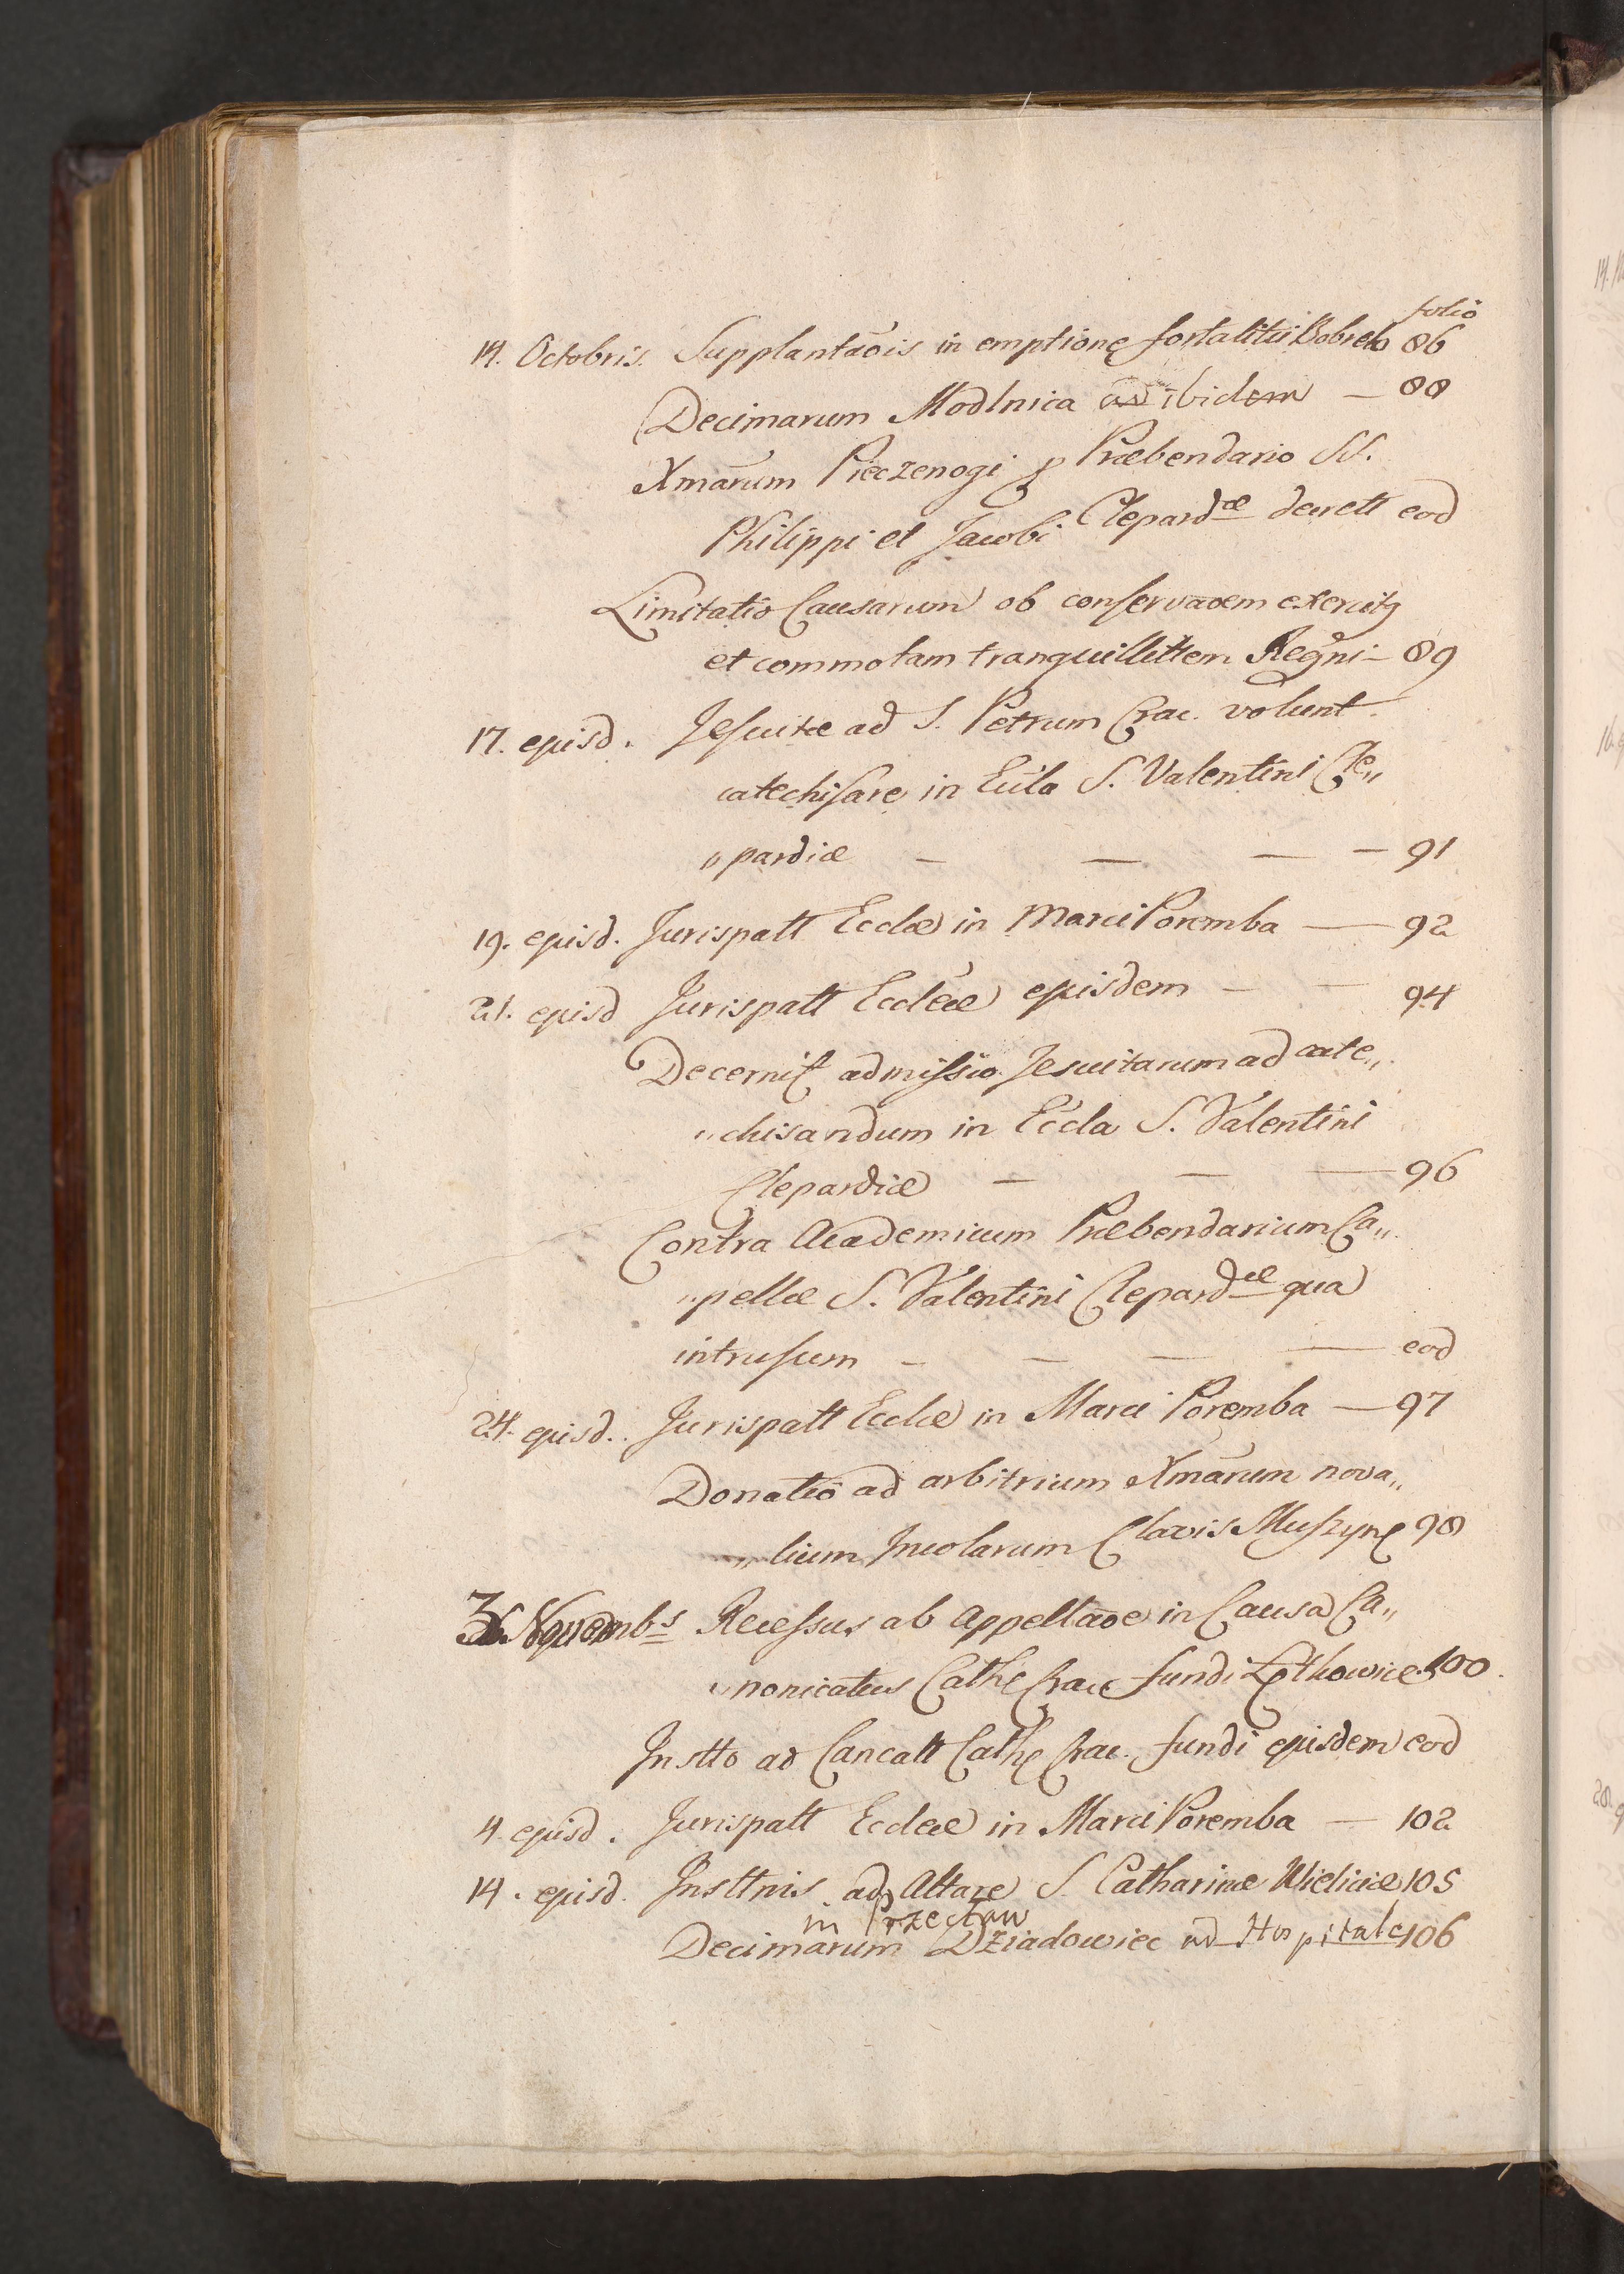 folio
14. Octobris. Supplantaõis in emptione fortalitii Bobrek 86
Decimarum Modlnica ad ibidem — 88
Xmārum Pieczenogi p Præbendario SS.
Philippi et Jacobi Clepard<sup>æ</sup> decrett eod
Limitatio Causarum ob conservaõem exercitq
et commotam tranquillittem Regni — 89
17. ejusd. Jesuitæ ad S. Petrum Crac. volunt
catechisare in Eccla S. Valentini Cle„
„pardiæ — — — — 91
19. ejusd. Jurispatt Ecclæ in Marci Poremba — 92
21. ejusd Jurispatt Eccleæ ejusdem — — 94
Decernit admissio Jesuitarum ad cate„
„chisandum in Eccla S. Valentini
Clepardiæ — — — 96
Contra Academicum Præbendarium Ca„
„pellæ S. Valentini Clepard<sup>æ</sup> qua
intrusum — — — — eod
24. ejusd. Jurispatt Ecclæ in Marci Poremba — 97
Donatio ad arbitrium Xmārum nova„
„lium Incolarum Clavis Muszyne 98
3. Novemb<sup>s</sup> Recessus ab Appellaõe in Causa Ca„
„nonicatus Cathe Crace fundi Zętkowice 100.
Instto ad Cancatt Cathe Crac. fundi ejusdem eod
4 ejusd. Jurispatt Eccleæ in Marci Poremba — 102
14. ejusd. Insttnis ad Altare S. Catharinæ Wieliciæ 105
in Przecław
Decimarum Dziadowiec ad Hospitale 106